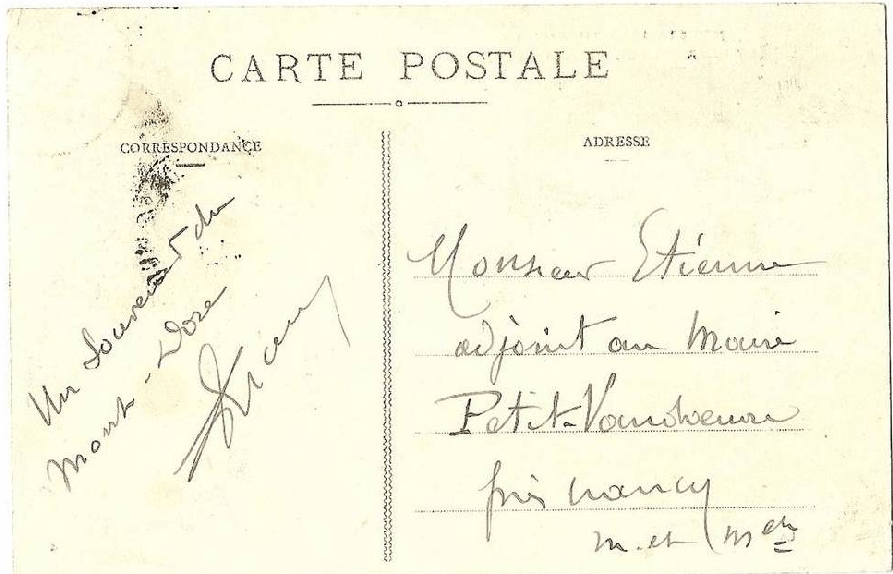 CARTE POSTALE
CORRESPONDANCE
Un Souvenir du
Mont-Dore
ADRESSE
Monsieur Etienne
adjoint au Maire
Petit-Vandoeuvre
près Nancy
M. et Melle